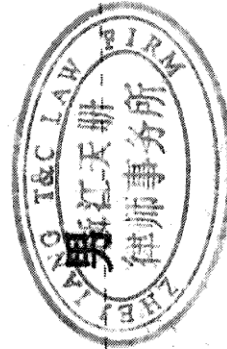 ZHEJIANG T&C LAW FIRM
浙江天册
律师事务所
男